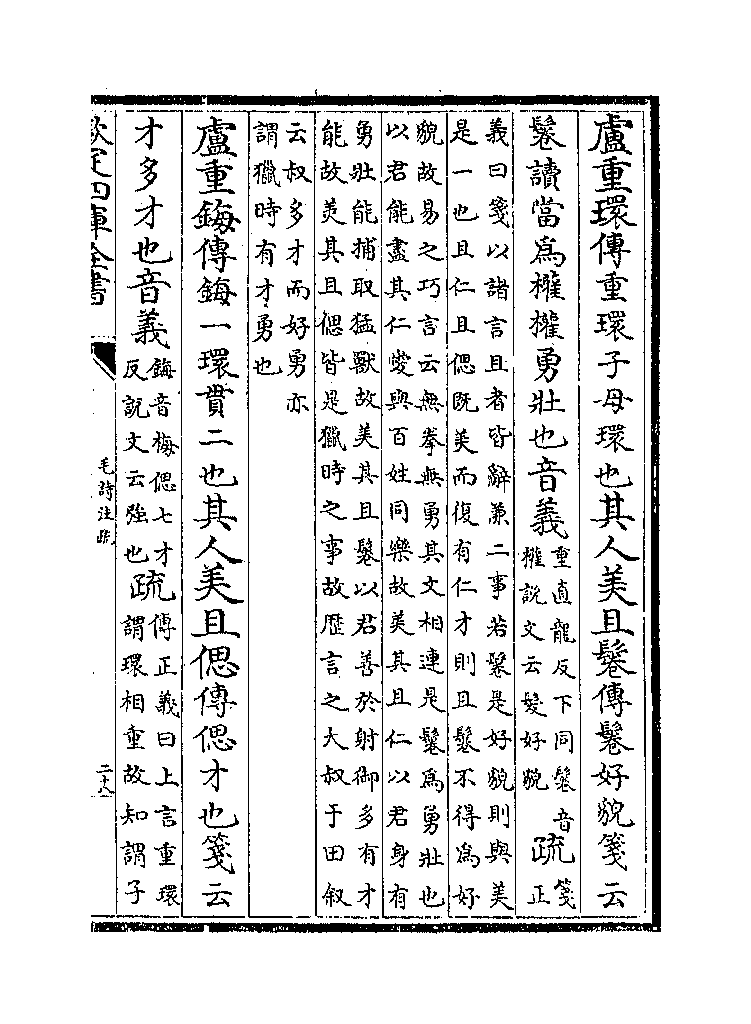 盧重環傳重環子母環也其人美且鬈傳鬈好貌箋云
鬈讀當爲權權勇壯也音義
重直龍反下同鬈音
權説文云髮好貌
疏
箋
正
義曰箋以諸言且者皆辭兼二事若鬈是好貌則與美
是一也且仁且偲既美而復有仁才則且鬈不得爲好
貌故易之巧言云無拳無勇其文相連是鬈爲勇壯也
以君能盡其仁愛與百姓同樂故美其且仁以君身有
勇壯能捕取猛獸故美其且鬈以君善於射御多有才
能故美其且偲皆是獵時之事故歴言之大叔于田叙
云叔多才而好勇亦
謂獵時有才勇也
盧重鋂傳鋂一環貫二也其人美且偲傳偲才也箋云
才多才也音義
鋂音梅偲七才
反説文云强也
疏
傳正義曰上言重環
謂環相重故知謂子
欽定四庫全書
毛詩注疏
二十八